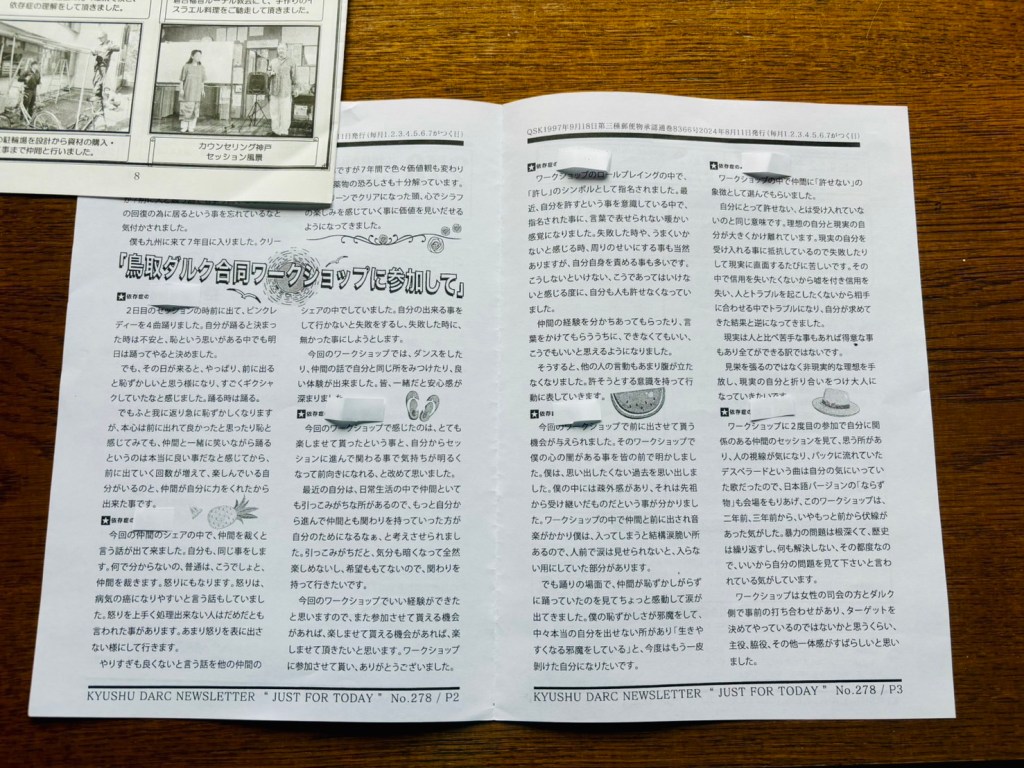 依存症の理解をして頂きました。
スラエル料理をご馳走して頂きました。
駐輪場を設計から資材の購入・
事まで仲間と行いました。
カウンセリング神戸
セッション風景
8
1日発行(毎月1.2.3.4.5.6.7がつく日)
ですが7年間で色々価値観も変わり
薬物の恐ろしさも十分解っています。
ーンでクリアになった頭、心でシラフ
の楽しみを感じていく事に価値を見いだせる
ようになってきました。
の回復の為に居るという事を忘れているなと
気付かされました。
僕も九州に来て7年目に入りました。クリー
「鳥取ダルク合同ワークショップに参加して」
★依存症の
2日目のセッションの時前に出て、ピンクレ
ディーを4曲踊りました。自分が踊ると決まっ
た時は不安と、恥という思いがある中でも明
日は踊ってやると決めました。
でも、その日が来ると、やっぱり、前に出る
と恥ずかしいと思う様になり、すごくギクシャ
クしていたなと感じました。踊る時は踊る。
でもふと我に返り急に恥ずかしくなります
が、本心は前に出れて良かったと思ったり恥と
感じてみても、仲間と一緒に笑いながら踊る
というのは本当に良い事だなと感じてから、
前に出ていく回数が増えて、楽しんでいる自
分がいるのと、仲間が自分に力をくれたから
出来た事です。
★依存症
今回の仲間のシェアの中で、仲間を裁くと
言う話が出て来ました。自分も、同じ事をしま
す。何で分からないの、普通は、こうでしょと、
仲間を裁きます。怒りにもなります。怒りは、
病気の癌になりやすいと言う話もしていまし
た。怒りを上手く処理出来ない人はだめだとも
言われた事があります。あまり怒りを表に出さ
ない様にして行きます。
やりすぎも良くないと言う話を他の仲間の
シェアの中でしていました。自分の出来る事を
して行かないと失敗をするし、失敗した時に、
無かった事にしようとします。
今回のワークショップでは、ダンスをした
り、仲間の話で自分と同じ所をみつけたり、良
い体験が出来ました。皆、一緒だと安心感が
深まりました
★依存症
今回のワークショップで感じたのは、とても
楽しませて貰ったという事と、自分からセッシ
ョンに進んで関わる事で気持ちが明るく
なって前向きになれる、と改めて思いました。
最近の自分は、日常生活の中で仲間といて
も引っこみがちな所があるので、もっと自分か
ら進んで仲間とも関わりを持っていった方が
自分のためになるなぁ、と考えさせられまし
た。引っこみがちだと、気分も暗くなって全然
楽しめないし、希望ももてないので、関わりを
持って行きたいです。
今回のワークショップでいい経験ができた
と思いますので、また参加させて貰える機会
があれば、楽しませて貰える機会があれば、楽
しませて頂きたいと思います。ワークショップ
に参加させて貰い、ありがとうございました。
KYUSHU DARC NEWSLETTER “ JUST FOR TODAY ” No.278 / P2
QSK1997年9月18日第三種郵便物承認通巻8366号2024年8月11日発行(毎月1.2.3.4.5.6.7がつく日)
★依存症
ワークショップのロールプレイングの中で、
「許し」のシンボルとして指名されました。最
近、自分を許すという事を意識している中で、
指名された事に、言葉で表せられない暖かい
感覚になりました。失敗した時や、うまくいか
ないと感じる時、周りのせいにする事も当然
ありますが、自分自身を責める事も多いです。
こうしないといけない、こうであってはいけな
いと感じる度に、自分も人も許せなくなってい
きました。
仲間の経験を分かちあってもらったり、言
葉をかけてもらううちに、できなくてもいい、
こうでもいいと思えるようになりました。
そうすると、他の人の言動もあまり腹が立た
なくなりました。許そうとする意識を持って行
動に表していきます。
★依存
今回のワークショップで前に出させて貰う
機会が与えられました。そのワークショップで
僕の心の闇がある事を皆の前で明かしまし
た。僕は、思い出したくない過去を思い出しま
した。僕の中には疎外感があり、それは先祖
から受け継いだものだという事が分かりまし
た。ワークショップの中で仲間と前に出され音
楽がかかり僕は、入ってしまうと結構涙脆い所
があるので、人前で涙は見せられないと、入らな
い用にしていた部分があります。
でも踊りの場面で、仲間が恥ずかしがらず
に踊っていたのを見てちょっと感動して涙が
出てきました。僕の恥ずかしさが邪魔をして、
中々本当の自分を出せない所があり「生きや
すくなる邪魔をしている」と、今度はもう一皮
剥けた自分になりたいです。
★依存症の
ワークショップの中で仲間に「許せない」の
象徴として選んでもらいました。
自分にとって許せない、とは受け入れていな
いのと同じ意味です。理想の自分と現実の自
分が大きくかけ離れています。現実の自分を
受け入れる事に抵抗しているので失敗したり
して現実に直面するたびに苦しいです。その
中で信用を失いたくないから嘘を付き信用を
失い、人とトラブルを起こしたくないから相手
に合わせる中でトラブルになり、自分が求めて
きた結果と逆になってきました。
現実は人と比べ苦手な事もあれば得意な事
もあり全てができる訳ではないです。
見栄を張るのではなく非現実的な理想を手
放し、現実の自分と折り合いをつけ大人に
なっていきたいです
★依存症の
ワークショップに2度目の参加で自分に関
係のある仲間のセッションを見て、思う所があ
り、人の視線が気になり、バックに流れていた
デスペラードという曲は自分の気にいってい
た歌だったので、日本語バージョンの「ならず
物」も会場をもりあげ、このワークショップは、
二年前、三年前から、いやもっと前から伏線が
あった気がした。暴力の問題は根深くて、歴史
は繰り返すし、何も解決しない、その都度なの
で、いいから自分の問題を見て下さいと言わ
れている気がしています。
ワークショップは女性の司会の方とダルク
側で事前の打ち合わせがあり、ターゲットを
決めてやっているのではないかと思うくらい、
主役、脇役、その他一体感がすばらしいと思い
ました。
KYUSHU DARC NEWSLETTER “ JUST FOR TODAY ” No.278 / P3